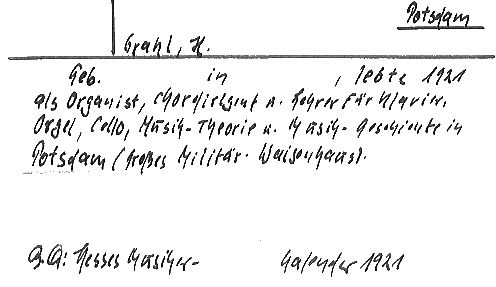 Potsdam
Grahl, H.
Geb. in , lebte 1921
als Organist, Chordirigent u. Lehrer für Klavier,
Orgel, Cello, Musik-Theorie u. Musik-Geschichte in
Potsdam (Großes Militär-Waisenhaus).
Q.A: Hesses Musiker- Kalender 1921